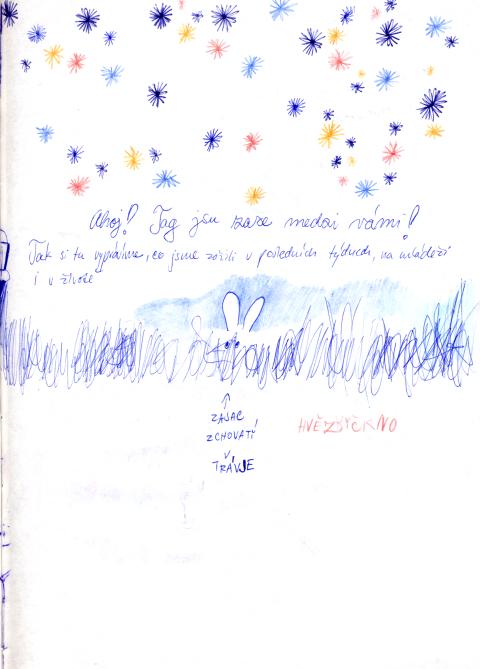 Ahoj! Tag jsu zaze medzi vámi!
Tak si tu vyprávíme, co jsme zažili v posledních týdnech, na mládeži
i v životě
ZAJAC
ZCHOVATÝ
V
TRÁVJE